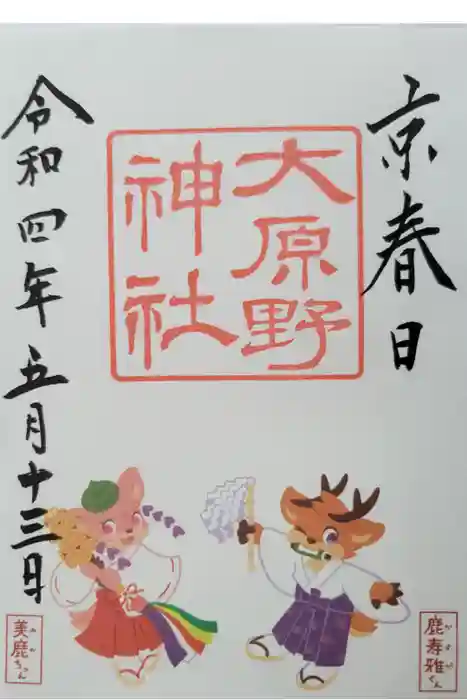 京春日
大原野
神社
令和四年五月十三日
鹿寿雅くん
かすがくん
美鹿ちゃん